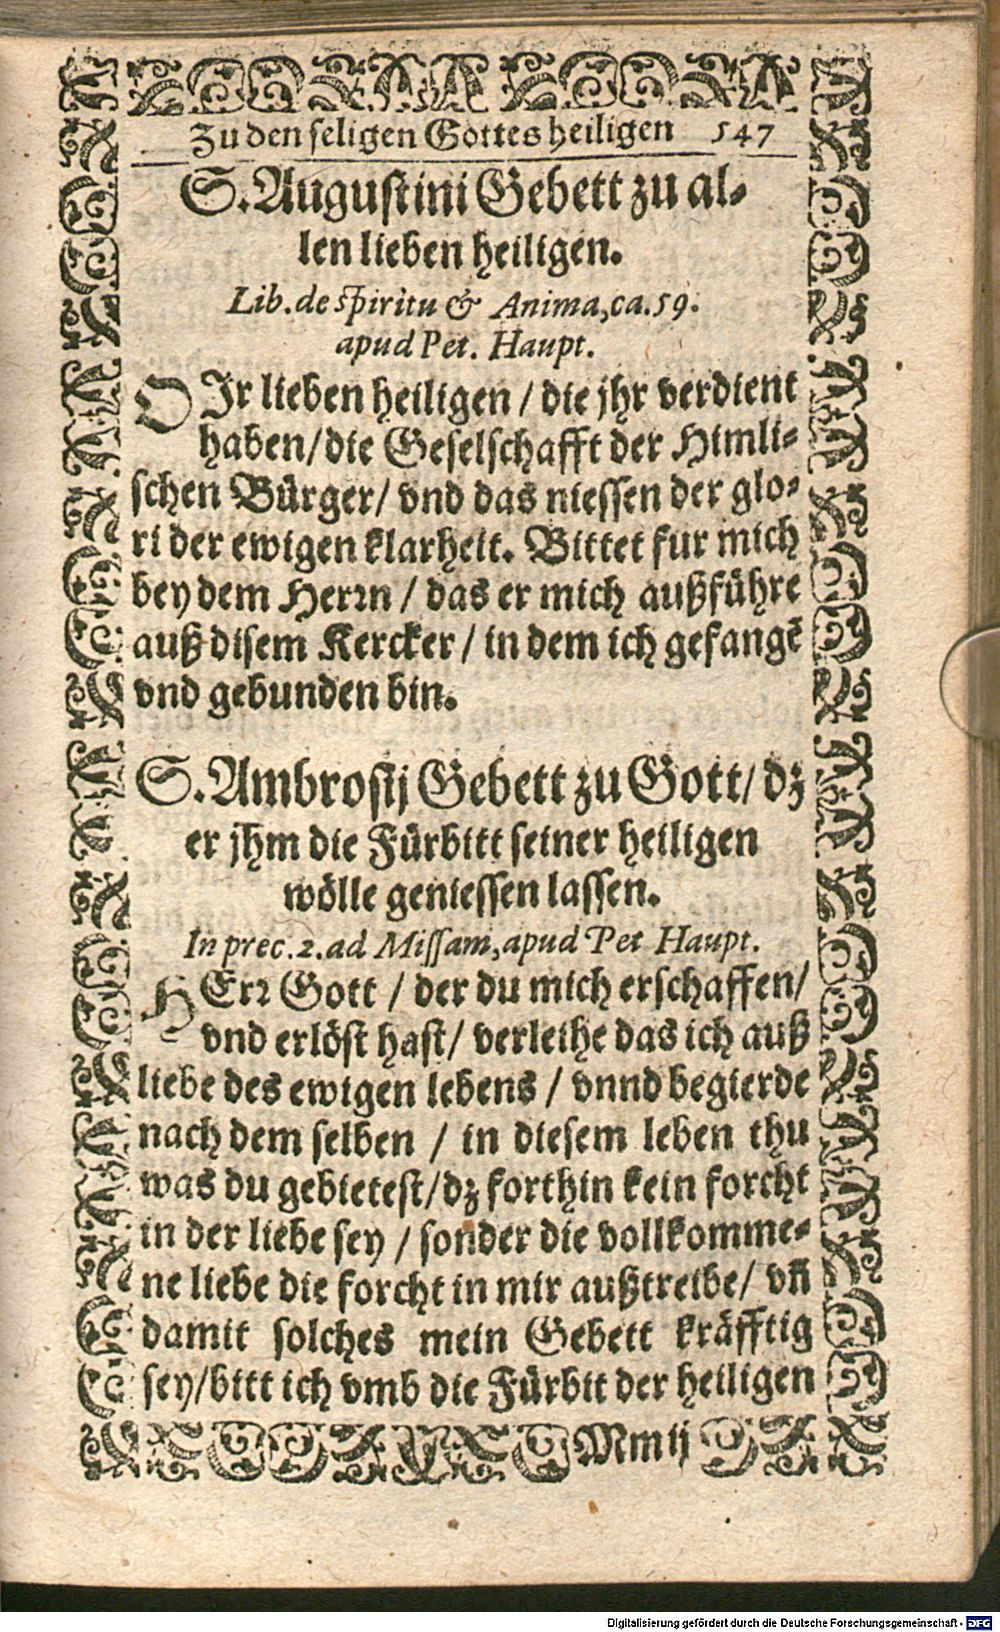 Zu den seligen Gottes heiligen 547
S. Augustini Gebett zu al-
len lieben heiligen.
Lib. de spiritu & Anima, ca. 59.
apud Pet. Haupt.
OIr lieben heiligen / die jhr verdient
haben / die Geselschafft der Himli-
schen Bürger / vnd das niessen der glo-
ri der ewigen klarheit. Bittet fur mich
bey dem Herrn / das er mich außführe
auß disem Kercker / in dem ich gefangē
vnd gebunden bin.
S. Ambrosij Gebett zu Gott / dz
er jhm die Fürbitt seiner heiligen
wölle geniessen lassen.
In prec. 2. ad Missam, apud Pet Haupt.
HErr Gott / der du mich erschaffen /
vnd erlöst hast / verleihe das ich auß
liebe des ewigen lebens / vnnd begierde
nach dem selben / in diesem leben thu
was du gebietest / dz forthin kein forcht
in der liebe sey / sonder die vollkomme-
ne liebe die forcht in mir außtreibe / vñ
damit solches mein Gebett kräfftig
sey / bitt ich vmb die Fürbit der heiligen
Mm ij
Digitalisierung gefördert durch die Deutsche Forschungsgemeinschaft - DFG